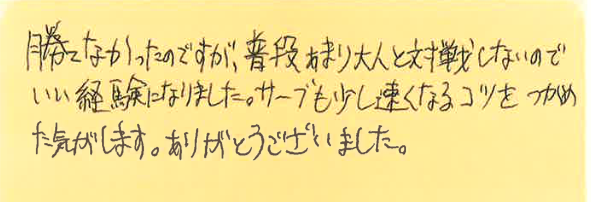 勝てなかったのですが、普段あまり大人と対戦しないので
いい経験になりました。サーブも少し速くなるコツをつかめ
た気がします。ありがとうございました。